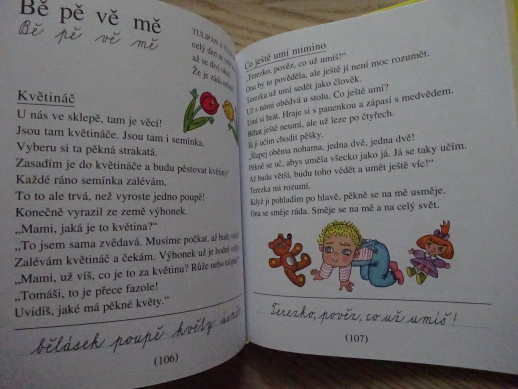 Bě pě vě mě
Bě pě vě mě
TULIPÁN A
celý den se
až se diví okolí
Že je záda
Květináč
U nás ve sklepě, tam je věcí!
Jsou tam květináče. Jsou tam i semínka.
Vyberu si ta pěkná strakatá.
Zasadím je do květináče a budu pěstovat květiny!
Každé ráno semínka zalévám.
To to ale trvá, než vyroste jedno poupě!
Konečně vyrazil ze země výhonek.
„Mami, jaká je to květina?“
„To jsem sama zvědavá. Musíme počkat, až bude
Zalévám květináč a čekám. Výhonek už je hodně
„Mami, už víš, co je to za květinu? Růže nebo
„Tomáši, to je přece fazole!
Uvidíš, jaké má pěkné květy.“
bělásek poupě květy
(106)
Co ještě umí mimino
„Terezko, pověz, co už umíš!“
Ona by to pověděla, ale ještě jí není moc rozumět.
Terezka už umí sedět jako člověk.
Už s námi obědvá u stolu. Co ještě umí?
Umí si hrát. Hraje si s panenkou a zápasí s medvědem.
Běhat ještě neumí, ale už leze po čtyřech.
Já ji učím chodit pěšky.
„Šlapej oběma nohama, jedna dvě, jedna dvě!
Pěkně se uč, abys uměla všecko jako já. Já se taky učím.
Až budu větší, budu toho vědět a umět ještě víc!“
Terezka mi rozumí.
Když ji pohladím po hlavě, pěkně se na mě usměje.
Ona se směje ráda. Směje se na mě a na celý svět.
Terezko, pověz, co už umíš!
(107)